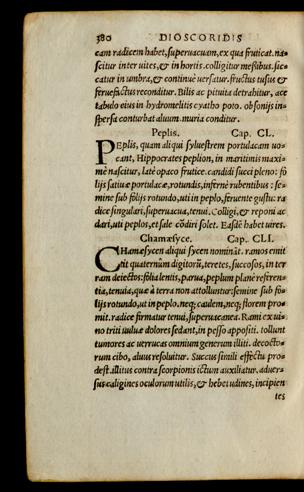 380 DIOSCORIDIS
eam radicem habet, superuacuam, ex qua fruticat. na-
scitur inter uites, & in hortis. colligitur meßibus. sic-
catur in umbra, & continuè uersatur. fructus tusus &
feruefactus reconditur. Bilis ac pituita detrahitur, ace
tabulo eius in hydromelitis cyatho poto. obsonijs in-
spersa conturbat aluum. muria conditur.
Peplis. Cap. CL.
PEplis, quam aliqui syluestrem portulacam uo-
cant, Hippocrates peplion, in maritimis maxi-
mè nascitur, latè opaco frutice. candidi succi pleno: fo
lijs satiuæ portulacæ, rotundis, infernè rubentibus: se-
mine sub folijs rotundo, uti in peplo, feruente gustu: ra
dice singulari, superuacua, tenui. Colligi, & reponi ac
dari, uti peplos, et sale cõdiri solet. Easdẽ habet uires.
Chamæsyce. Cap. CLI.
CHamæsycen aliqui sycen nominãt. ramos emit
tit quaternûm digitorũ, teretes, succosos, in ter
ram deiectos: folia lentis, parua, peplum planè referen-
tia, tenuia, quæ à terra non attolluntur: semine sub fo-
lijs rotundo, ut in peplo. neq; caulem, neq; florem pro-
mit. radice firmatur tenui, superuacanea. Rami ex ui-
no triti uuluæ dolores sedant, in pesso appositi. tollunt
tumores ac uerrucas omnium generum illiti. decocto-
rum cibo, aluus resoluitur. Succus simili effectu pro-
dest. illitus contra scorpionis ictum auxiliatur. aduer-
sus caligines oculorum utilis, & hebetudines, incipien
tes